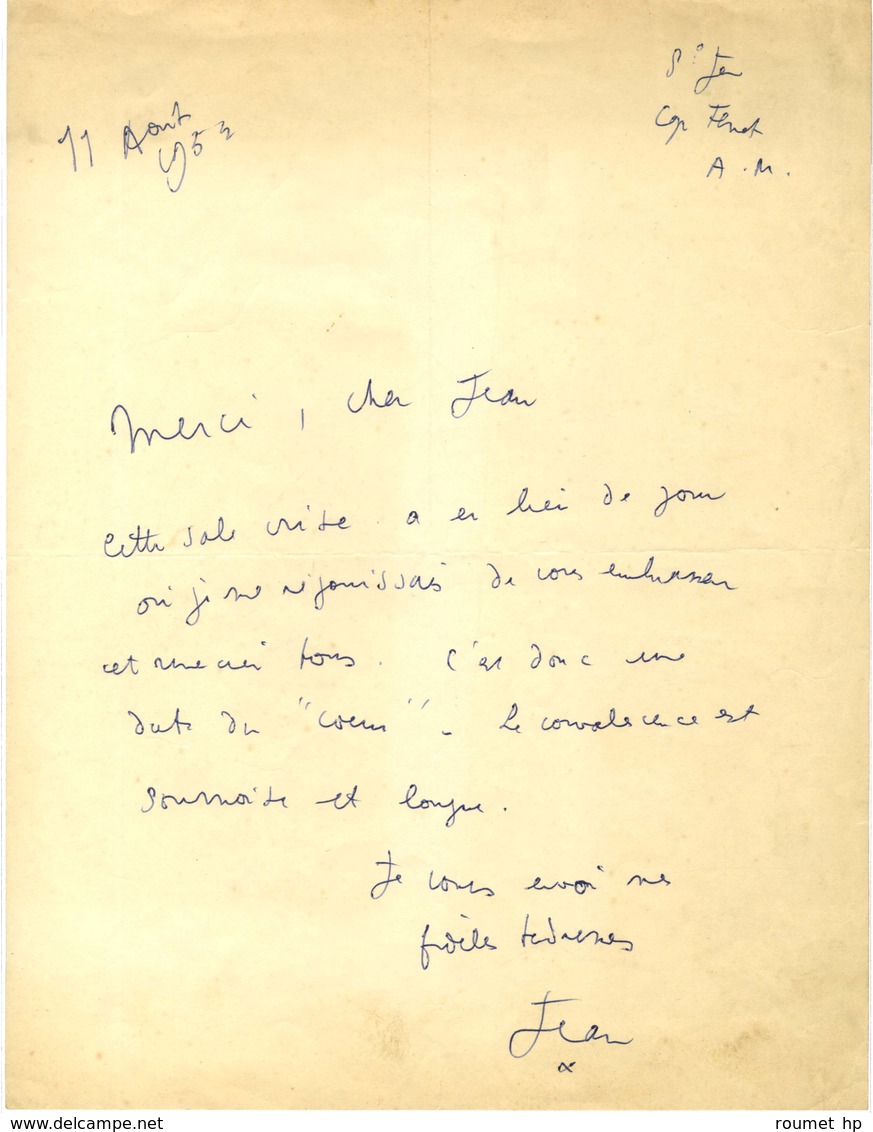 11 Août
1952
St Jean
Cap Ferrat
A.M.
Merci, cher Jean
Cette sale crise a eu lieu le jour
où je me réjouissais de vous embrasser
et remercier tous. C'est donc une
date du "coeur" - La convalescence est
sournoise et longue.
Je vous envoi mes
fidèles tendresses
Jean
delcampe.net
roumet hp